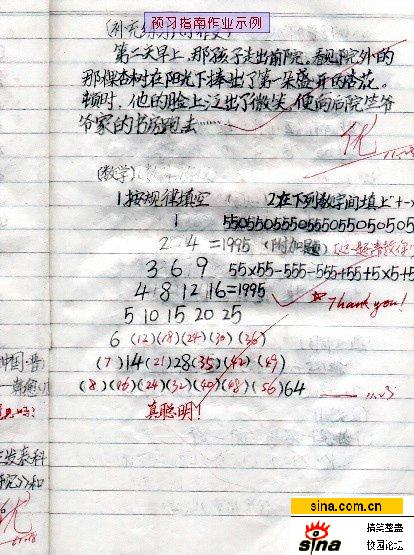 预习指南作业示例
第二天早上,那孩子走出前院。看见院外的
那棵杏树在阳光下捧出了第一朵盛开的杏花。
顿时,他的脸上泛出了微笑,便向后院竺爷
爷家的书房跑去……
优
(数学)
1按规律填空 2在下列数字间填上"+-×
1 550550555055055050505
2 4 =1995 (附加题)
3 6 9 55×55-555-555+55+5×5+5
4 8 12 16=1995 Thank you!
5 10 15 20 25
6 (12)(18)(24)(30)(36)
(7)14(21)28(35)(42)(49)
(8)(16)(24)(32)(40)(48)(56)64
真聪明!
优
sina.com.cn
sina
搞笑整蛊
校园论坛